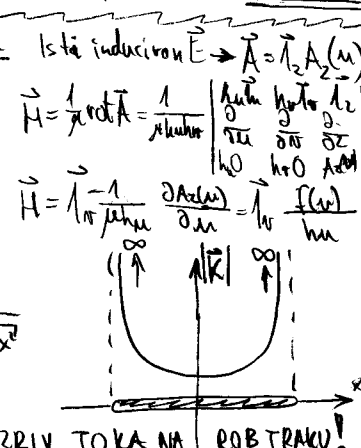 = Ista induciran E⃗ → A⃗ = 1⃗z Az(u)
H⃗ = 1/μ rot A⃗ = 1/(μ hu hv) | hu 1⃗u hv 1⃗v 1⃗z
∂/∂u ∂/∂v ∂/∂z
hu0 hv0 Az(u)
H⃗ = 1⃗v -1/(μ hu) ∂Az(u)/∂u = 1⃗v f(u)/hu
∞ |K⃗| ∞
x²
TOKA NA ROB TRAKU!